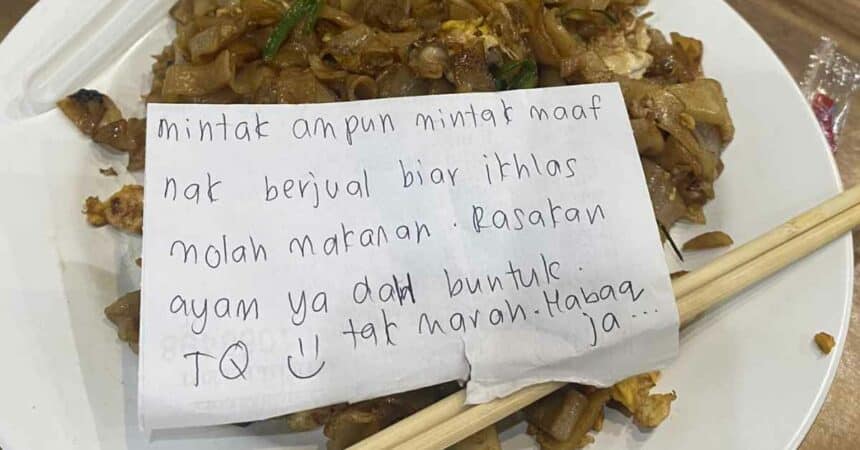 mintak ampun mintak maaf
nak berjual biar ikhlas
molah makanan. Rasakan
ayam ya dah buntuk.
tak marah. Habaq
TQ :) ja...